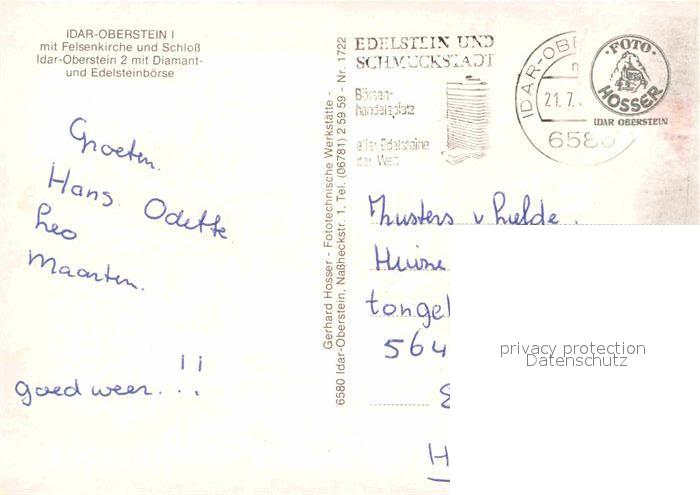 IDAR-OBERSTEIN I
mit Felsenkirche und Schloß
Idar-Oberstein 2 mit Diamant-
und Edelsteinbörse
Groeten.
Hans. Odette
Leo
Maarten.
goed weer...!!
Gerhard Hosser - Fototechnische Werkstätte -
6580 Idar-Oberstein, Naßheckstr. 1, Tel. (06781) 2 59 59 - Nr. 1722
EDELSTEIN UND
SCHMUCKSTADT
Börsen-
handelsplatz
aller Edelsteine
der Welt
IDAR-OB
21.7.
6580
·FOTO·
HOSSER
IDAR OBERSTEIN
Zusters v Liefde.
Huize
tongel
564
H
privacy protection
Datenschutz